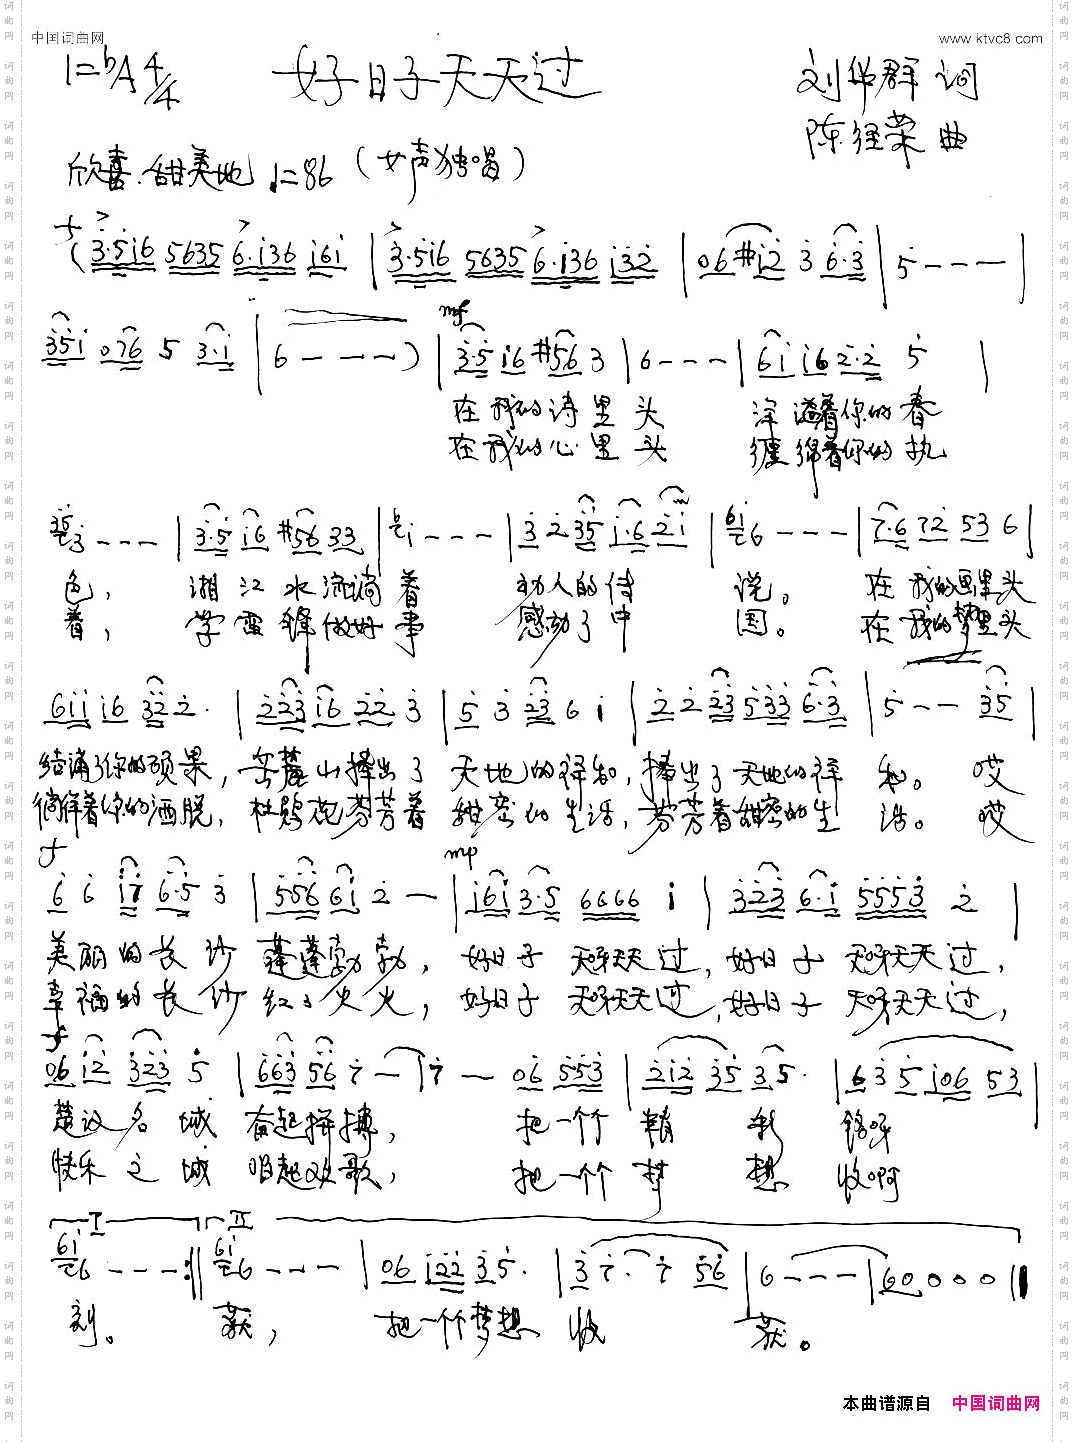 中国词曲网 www.ktvc8.com
1=bA 4/4 好日子天天过 刘华群 词
陈经荣 曲
欣喜.甜美地 ♩=86 (女声独唱)
f (3·516 5635 6·136 161 | 3·516 5635 6·136 132 | 06 #12 3 6·3 | 5 - - - |
351 076 5 3·1 | 6 - - - ) | mf 3·5 16 #56 3 | 6 - - - | 61 16 2·2 5 |
在我的诗里头 洋溢着你的春
在我的心里头 缠绵着你的执
35 3 - - - | 3·5 16 #56 33 | 1 - - - | 3 2 35 1·6 21 | 61 6 - - - | 7·6 72 53 6 |
色, 湘江水流淌着 动人的传 说。 在我的画里头
着, 学雷锋做好事 感动了中 国。 在我的梦里头
611 16 32 2· | 223 16 22 3 | 5 3 23 6 1 | 2 2 23 533 6·3 | 5 - - 35 |
结满了你的硕果, 岳麓山捧出了 天地的祥和, 捧出了天地的祥 和。 哎
徜徉着你的洒脱, 杜鹃花芬芳着 甜蜜的生活, 芬芳着甜蜜的生 活。 哎
f mp
6 6 17 6·5 3 | 556 61 2 - | 161 3·5 6666 1 | 323 6·1 5553 2 |
美丽的长沙 蓬蓬勃勃, 好日子 天呀天天过, 好日子 天呀天天过,
幸福的长沙 红红火火, 好日子 天呀天天过, 好日子 天呀天天过,
f
06 12 323 5 | 663 56 1 - | 1 - 06 553 | 212 35 35· | 6 3 5 106 53 |
楚汉名城 奋起拼搏, 把一个个 精 彩 铭呀
快乐之城 唱起欢歌, 把一个个 梦 想 收啊
I II
61 6 - - - :|| 61 6 - - - | 06 122 35· | 3 1· 1 56 | 6 - - - | 60 0 0 0 ||
刻。 获, 把一个个梦想 收 获。
本曲谱源自 中国词曲网